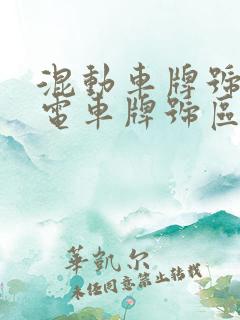 混動車牌號
電車牌號區
華凱尔
未经同意禁止转载